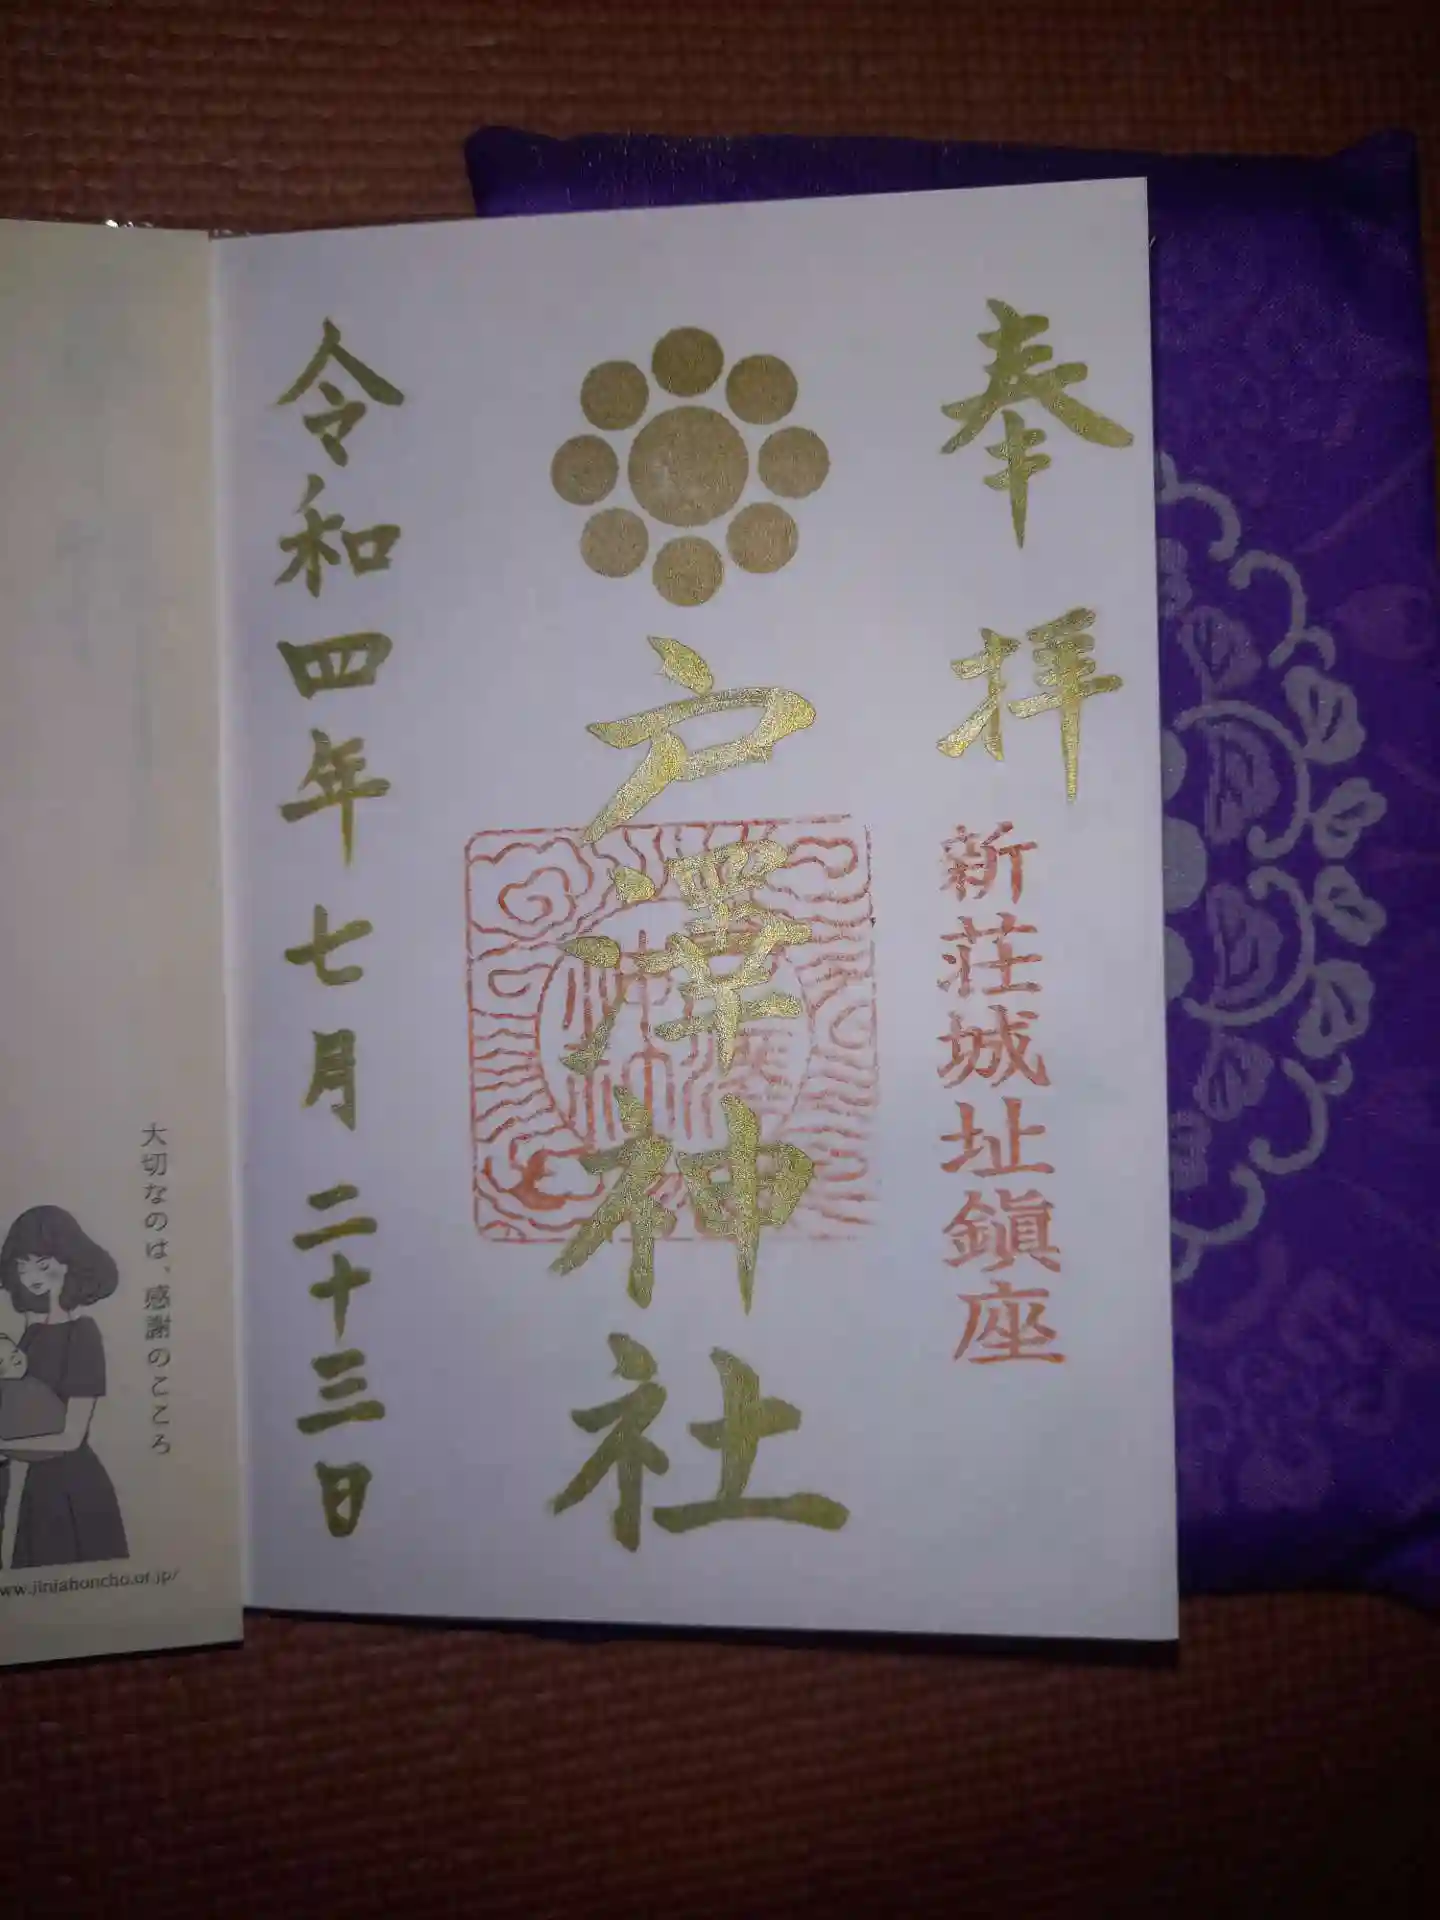 奉拝
新荘城址鎮座
戸澤神社
令和四年七月二十三日
大切なのは、感謝のこころ
ww.jinjahoncho.or.jp/